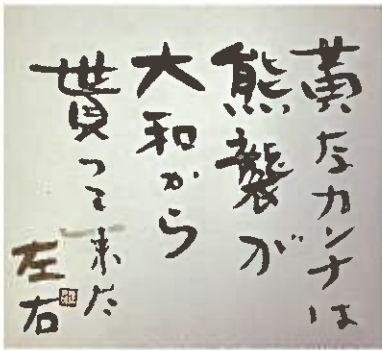 黄なカンナは
熊襲が
大和から
貰つて来た
左右